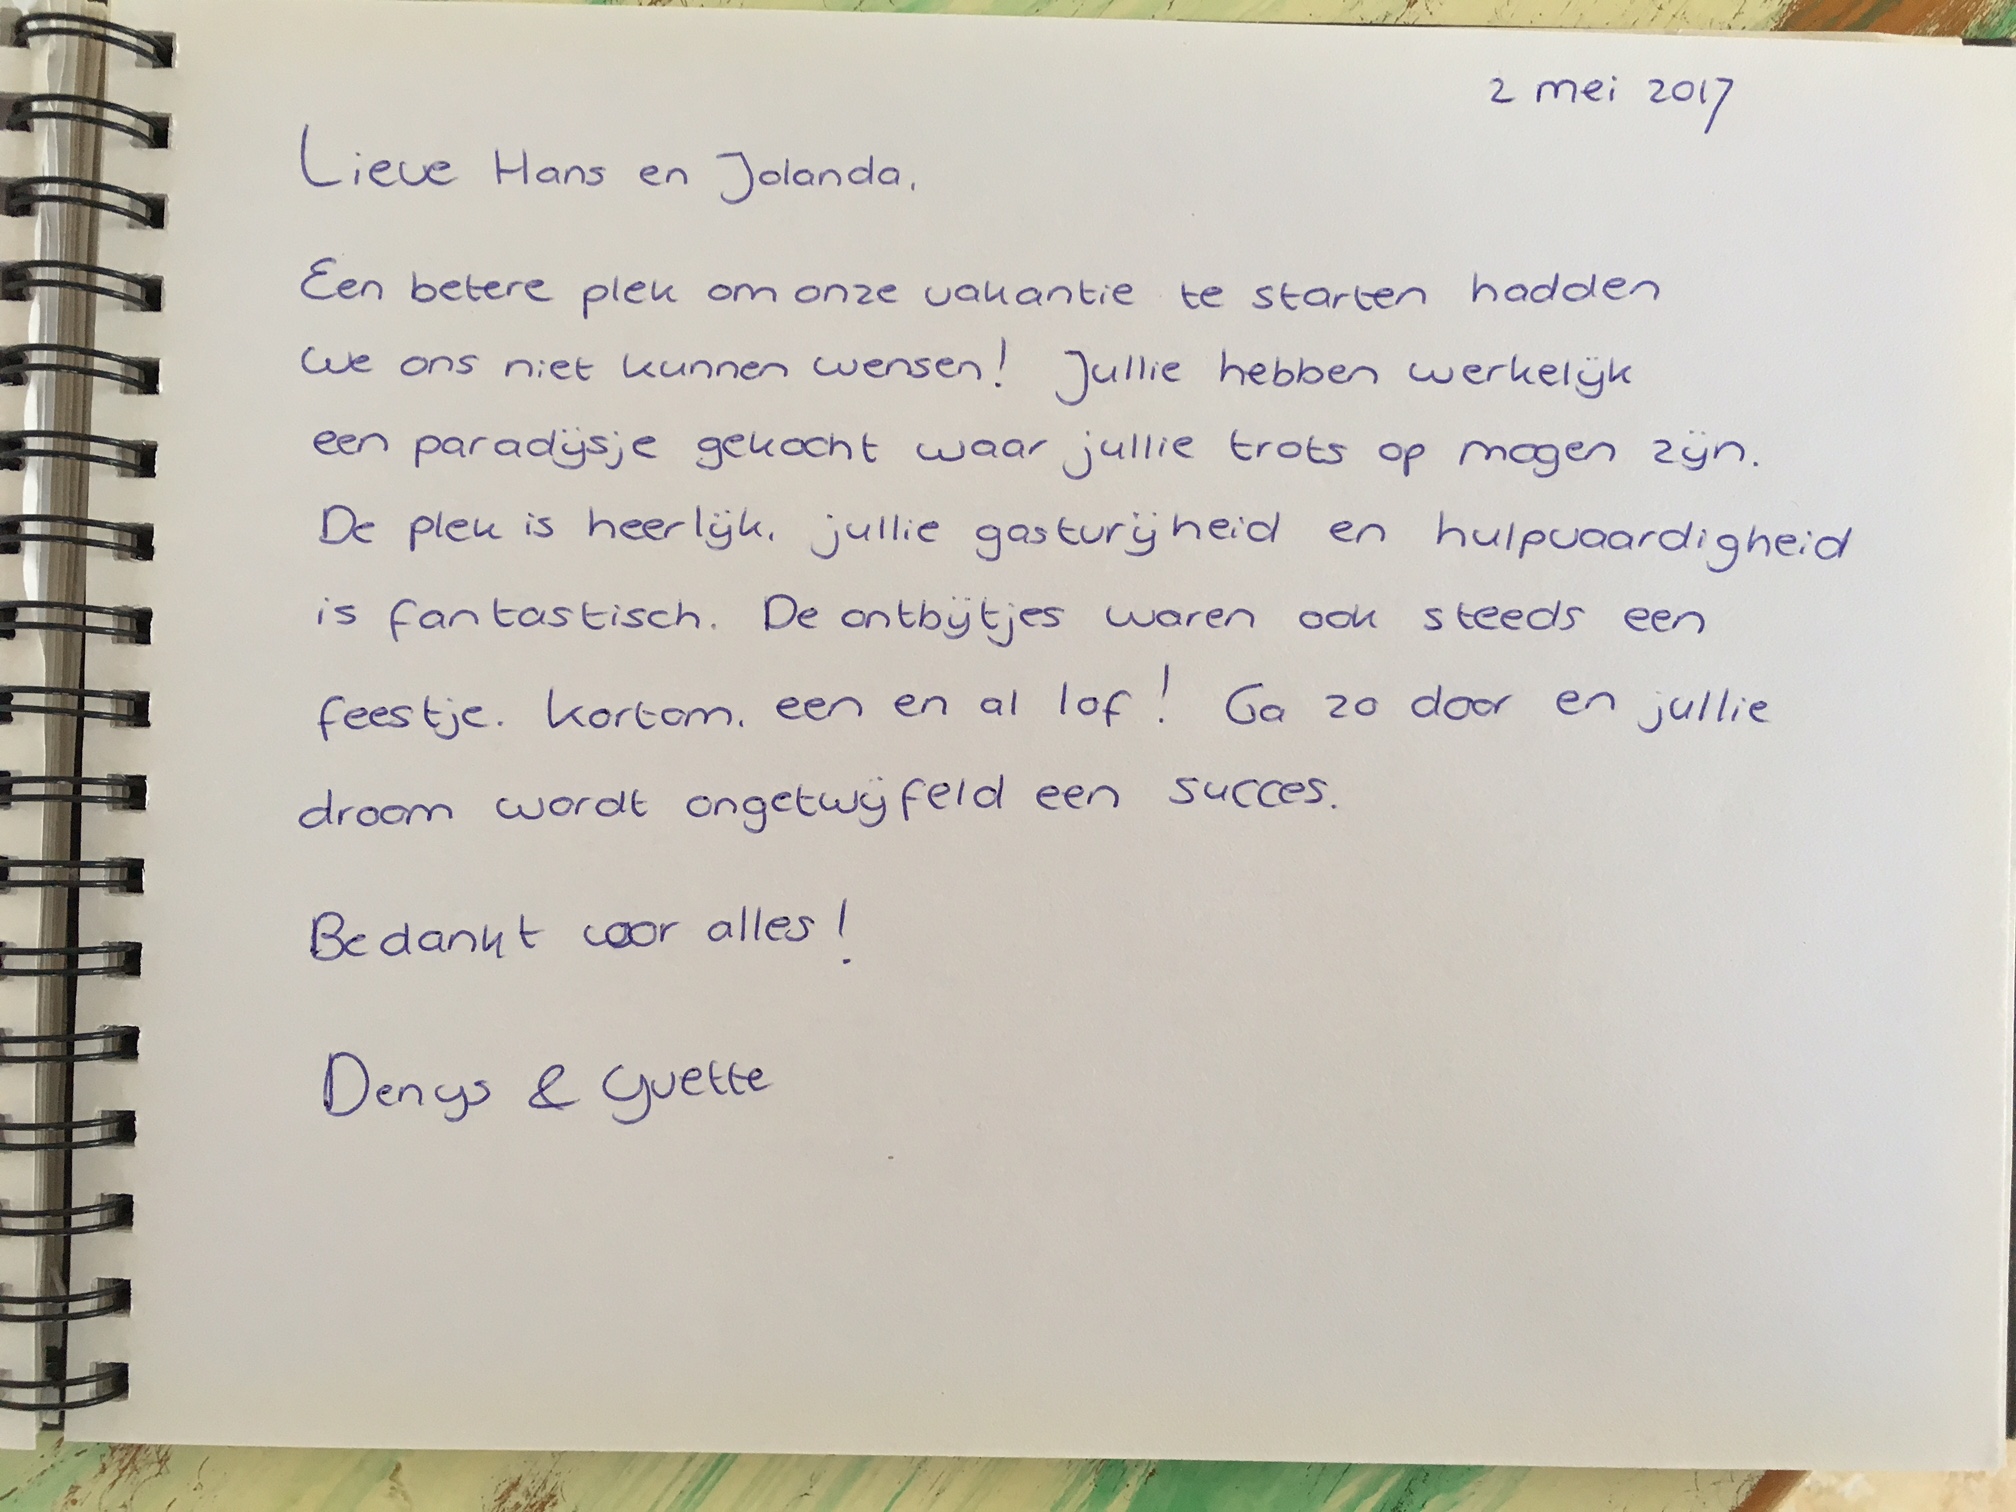 2 mei 2017
Lieve Hans en Jolanda,
Een betere plek om onze vakantie te starten hadden
we ons niet kunnen wensen! Jullie hebben werkelijk
een paradijsje gekocht waar jullie trots op mogen zijn.
De plek is heerlijk, jullie gastvrijheid en hulpvaardigheid
is fantastisch. De ontbijtjes waren ook steeds een
feestje. Kortom, een en al lof! Ga zo door en jullie
droom wordt ongetwijfeld een succes.
Bedankt voor alles!
Denys & Yvette